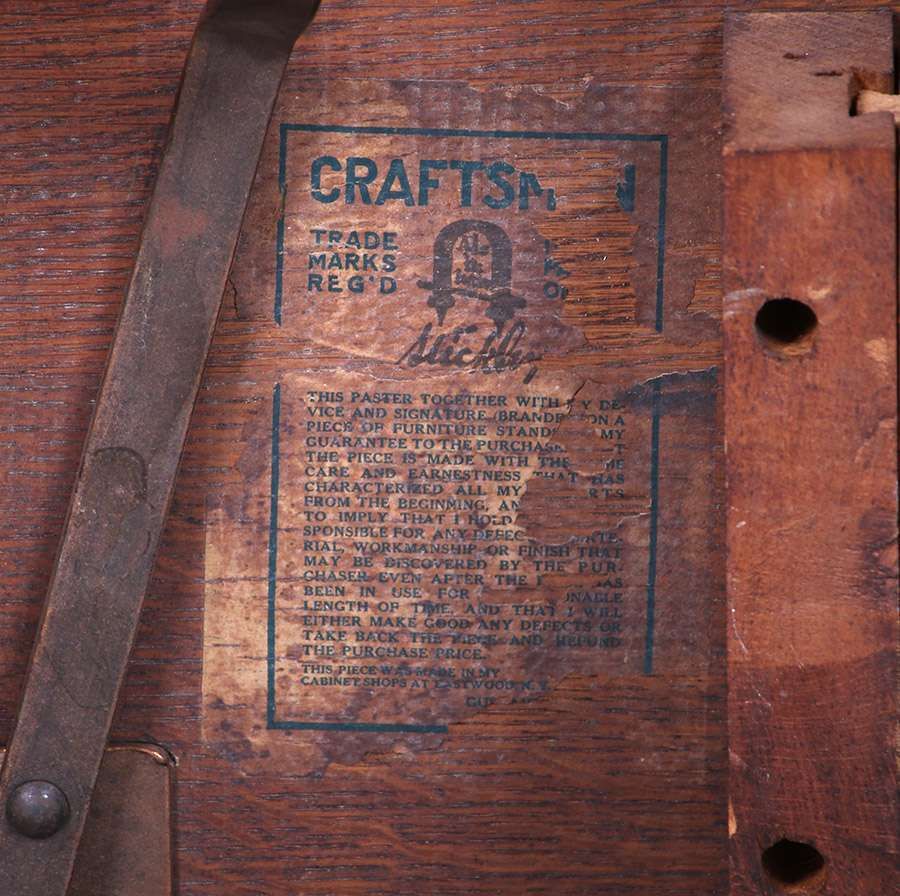 CRAFTSM N
TRADE
MARKS
REG'D
ALS
IK
Stickley
THIS PASTER TOGETHER WITH Y DE-
VICE AND SIGNATURE (BRANDE ON A
PIECE OF FURNITURE STAND MY
GUARANTEE TO THE PURCHASE T
THE PIECE IS MADE WITH THE
CARE AND EARNESTNESS THAT HAS
CHARACTERIZED ALL MY RTS
FROM THE BEGINNING, AN
TO IMPLY THAT I HOLD
SPONSIBLE FOR ANY DEFEC TE-
RIAL, WORKMANSHIP OR FINISH THAT
MAY BE DISCOVERED BY THE PUR-
CHASER EVEN AFTER THE AS
BEEN IN USE FOR ONABLE
LENGTH OF TIME, AND THAT I WILL
EITHER MAKE GOOD ANY DEFECTS OR
TAKE BACK THE PIECE AND REFUND
THE PURCHASE PRICE.
THIS PIECE WAS MADE IN MY
CABINET SHOPS AT EASTWOOD, N. Y.
GU